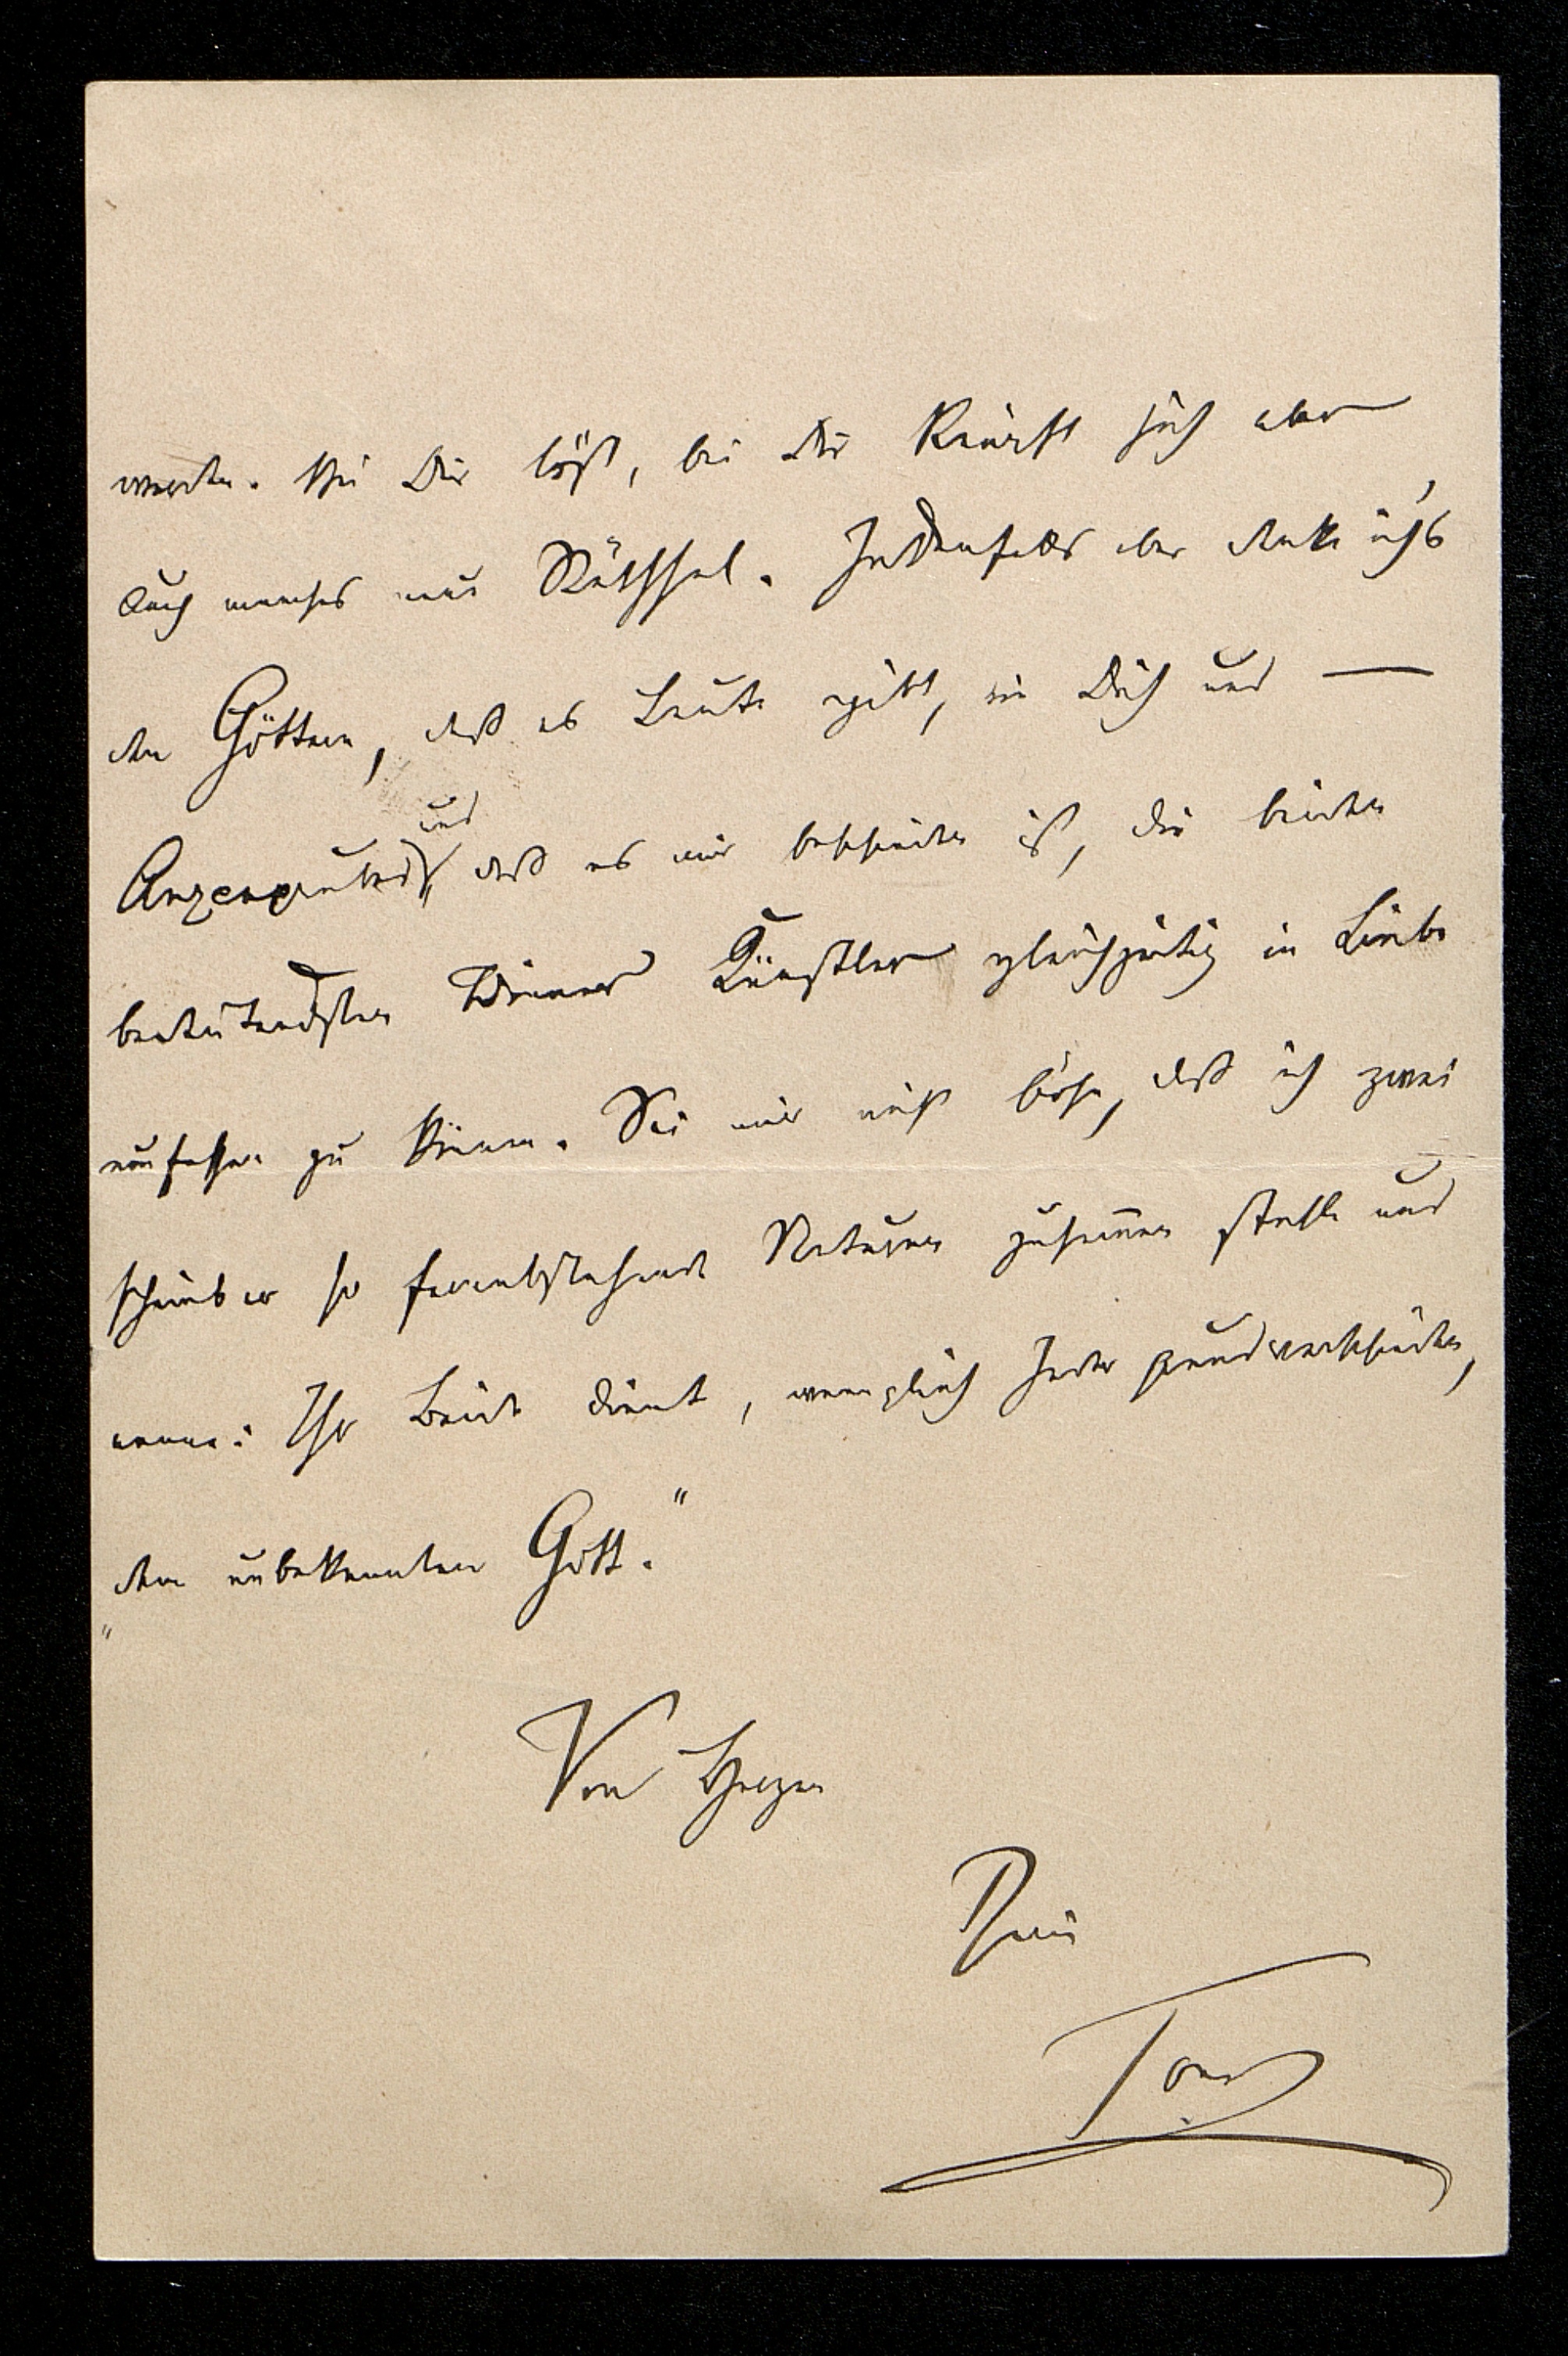 werden. Bei Dir löst, bei Dir knüpft sich aber
auch manches neue Räthsel. Jedenfalls aber dank' ich's
den Göttern, daß es Leute gibt, wie Dich und —
Anzengruber, und daß es mir beschieden ist, die beiden
bedeutendsten Wiener Künstler gleichzeitig in Liebe
umfassen zu können. Sei mir nicht böse, daß ich zwei
scheinbar so fernabstehende Naturen zusammen stelle und
nenne: Ihr Beide dient, wenngleich Jeder grundverschieden,
„dem unbekannten Gott."
Von Herzen
Dein